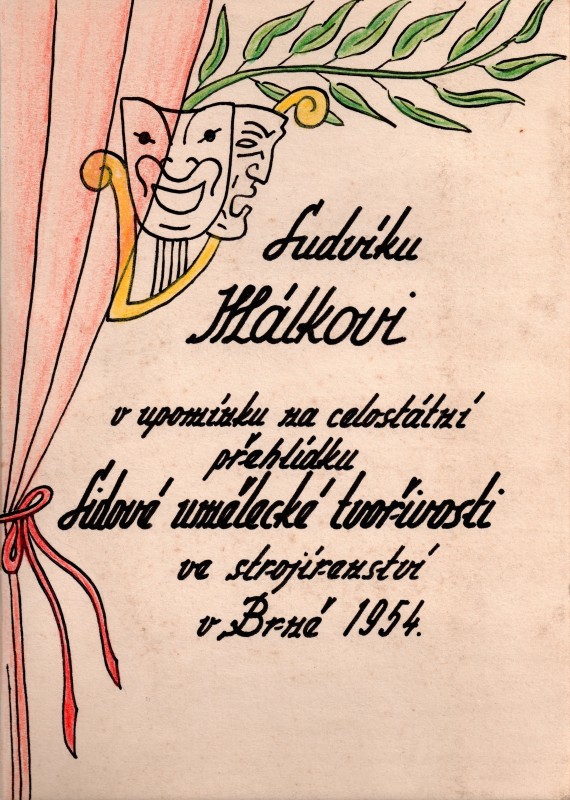 Ludvíku
Málkovi
v upomínku na celostátní
přehlídku
Lidové umělecké tvořivosti
ve strojírenství
v Brně 1954.